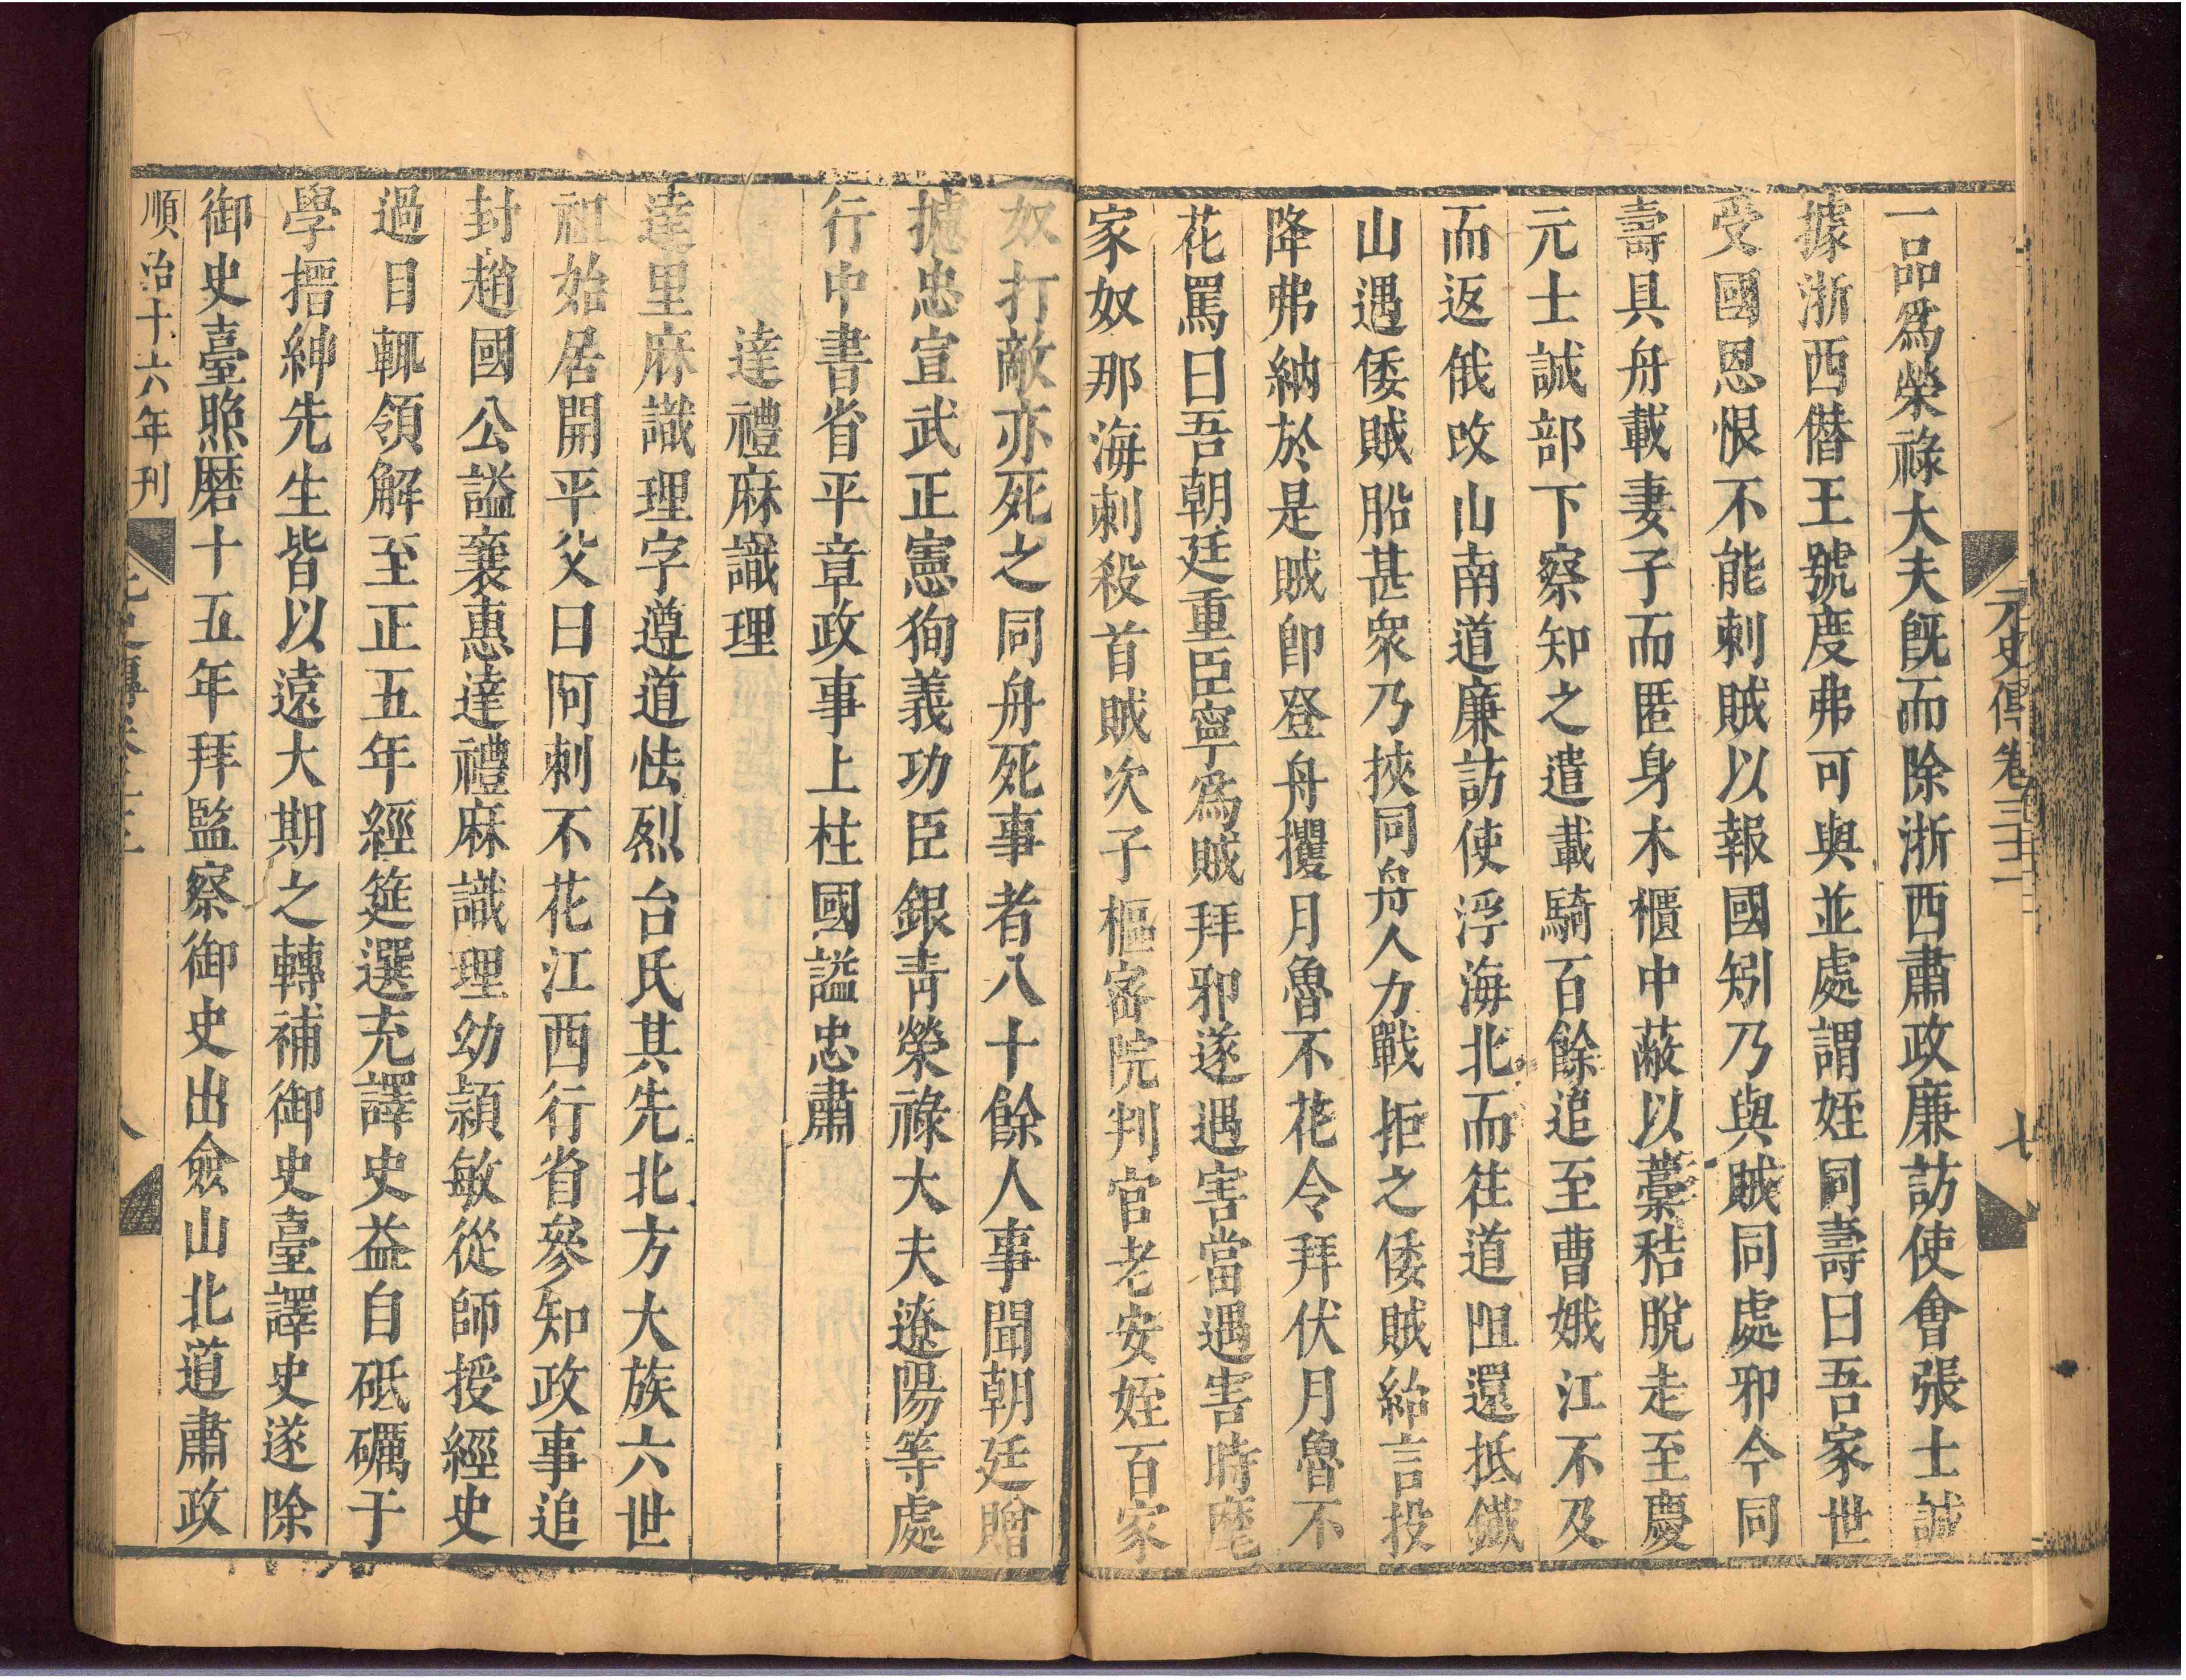 元史傳卷三十二
七
一品爲榮祿大夫旣而除浙西肅政廉訪使會張士誠
據浙西僣王號度弗可與並處謂姪同壽曰吾家世
受國恩恨不能刺賊以報國矧乃與賊同處邪今同
壽具舟載妻子而匿身木櫃中蔽以藁秸脫走至慶
元士誠部下察知之遣載騎百餘追至曹娥江不及
而返俄改山南道廉訪使浮海北而往道阻還抵鐵
山遇倭賊船甚衆乃挾同舟人力戰拒之倭賊紿言投
降弗納於是賊卽登舟攫月魯不花令拜伏月魯不
花罵曰吾朝廷重臣寧爲賊拜邪遂遇害當遇害時麾
家奴那海刺殺首賊次子樞密院判官老安姪百家
奴打敵亦死之同舟死事者八十餘人事聞朝廷贈
攄忠宣武正憲徇義功臣銀青榮祿大夫遼陽等處
行中書省平章政事上柱國諡忠肅
達禮麻識理
達里麻識理字遵道怯烈台氏其先北方大族六世
祖始居開平父曰阿剌不花江西行省參知政事追
封趙國公諡襄惠達禮麻識理幼頴敏從師授經史
過目輒領解至正五年經筵選充譯史益自砥礪于
學搢紳先生皆以遠大期之轉補御史臺譯史遂除
御史臺照磨十五年拜監察御史出僉山北道肅政
順治十六年刊
八